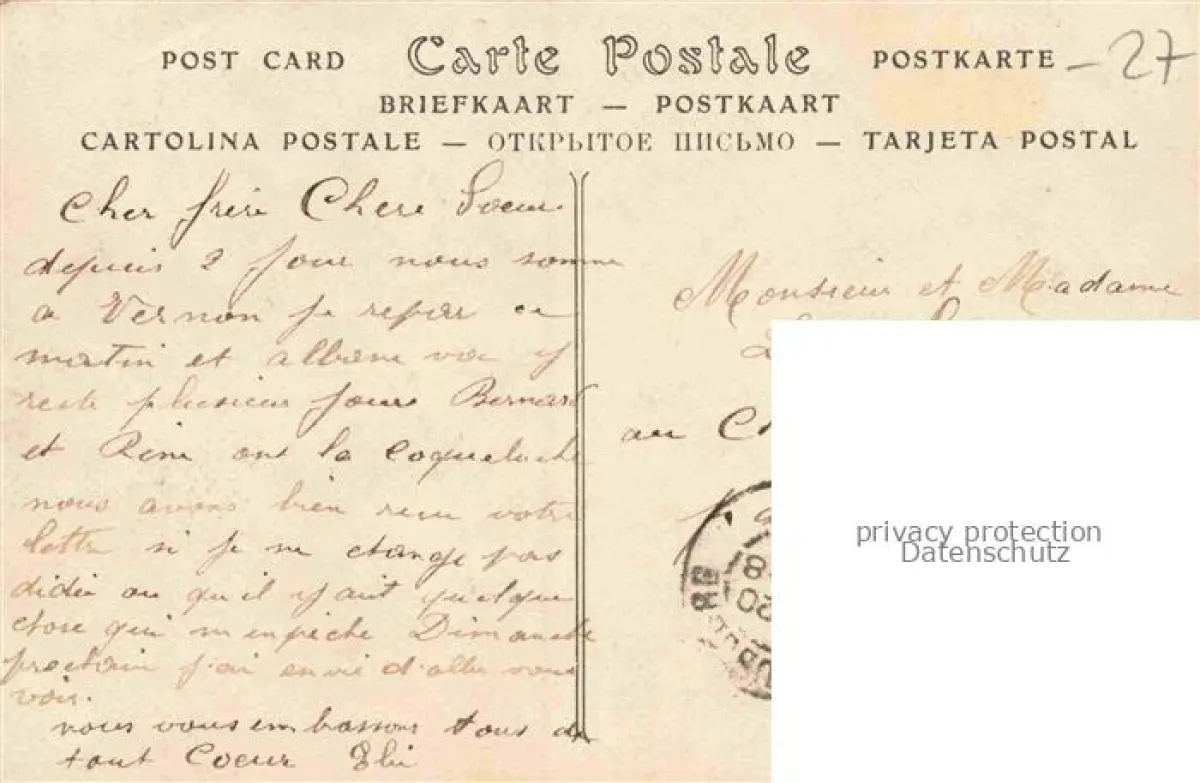 POST CARD Carte Postale POSTKARTE - 27
BRIEFKAART — POSTKAART
CARTOLINA POSTALE — ОТКРЫТОЕ ПИСЬМО — TARJETA POSTAL
Cher frère Chere Soeur
depuis 2 jour nous somme
a Vernon je repar ce
matin et albane va y
reste plusieur jours Bernard
et Rène ont la coqueluche
nous avons bien recu votre
lettre si je ne change pas
didée ou qu'il y ait quelque
chose qui m'enpèche Dimanche
prochain j'ai envie d'aller vous
voir.
nous vous embassons tous de
tout Coeur
Monsieur et Madame
au
privacy protection
Datenschutz